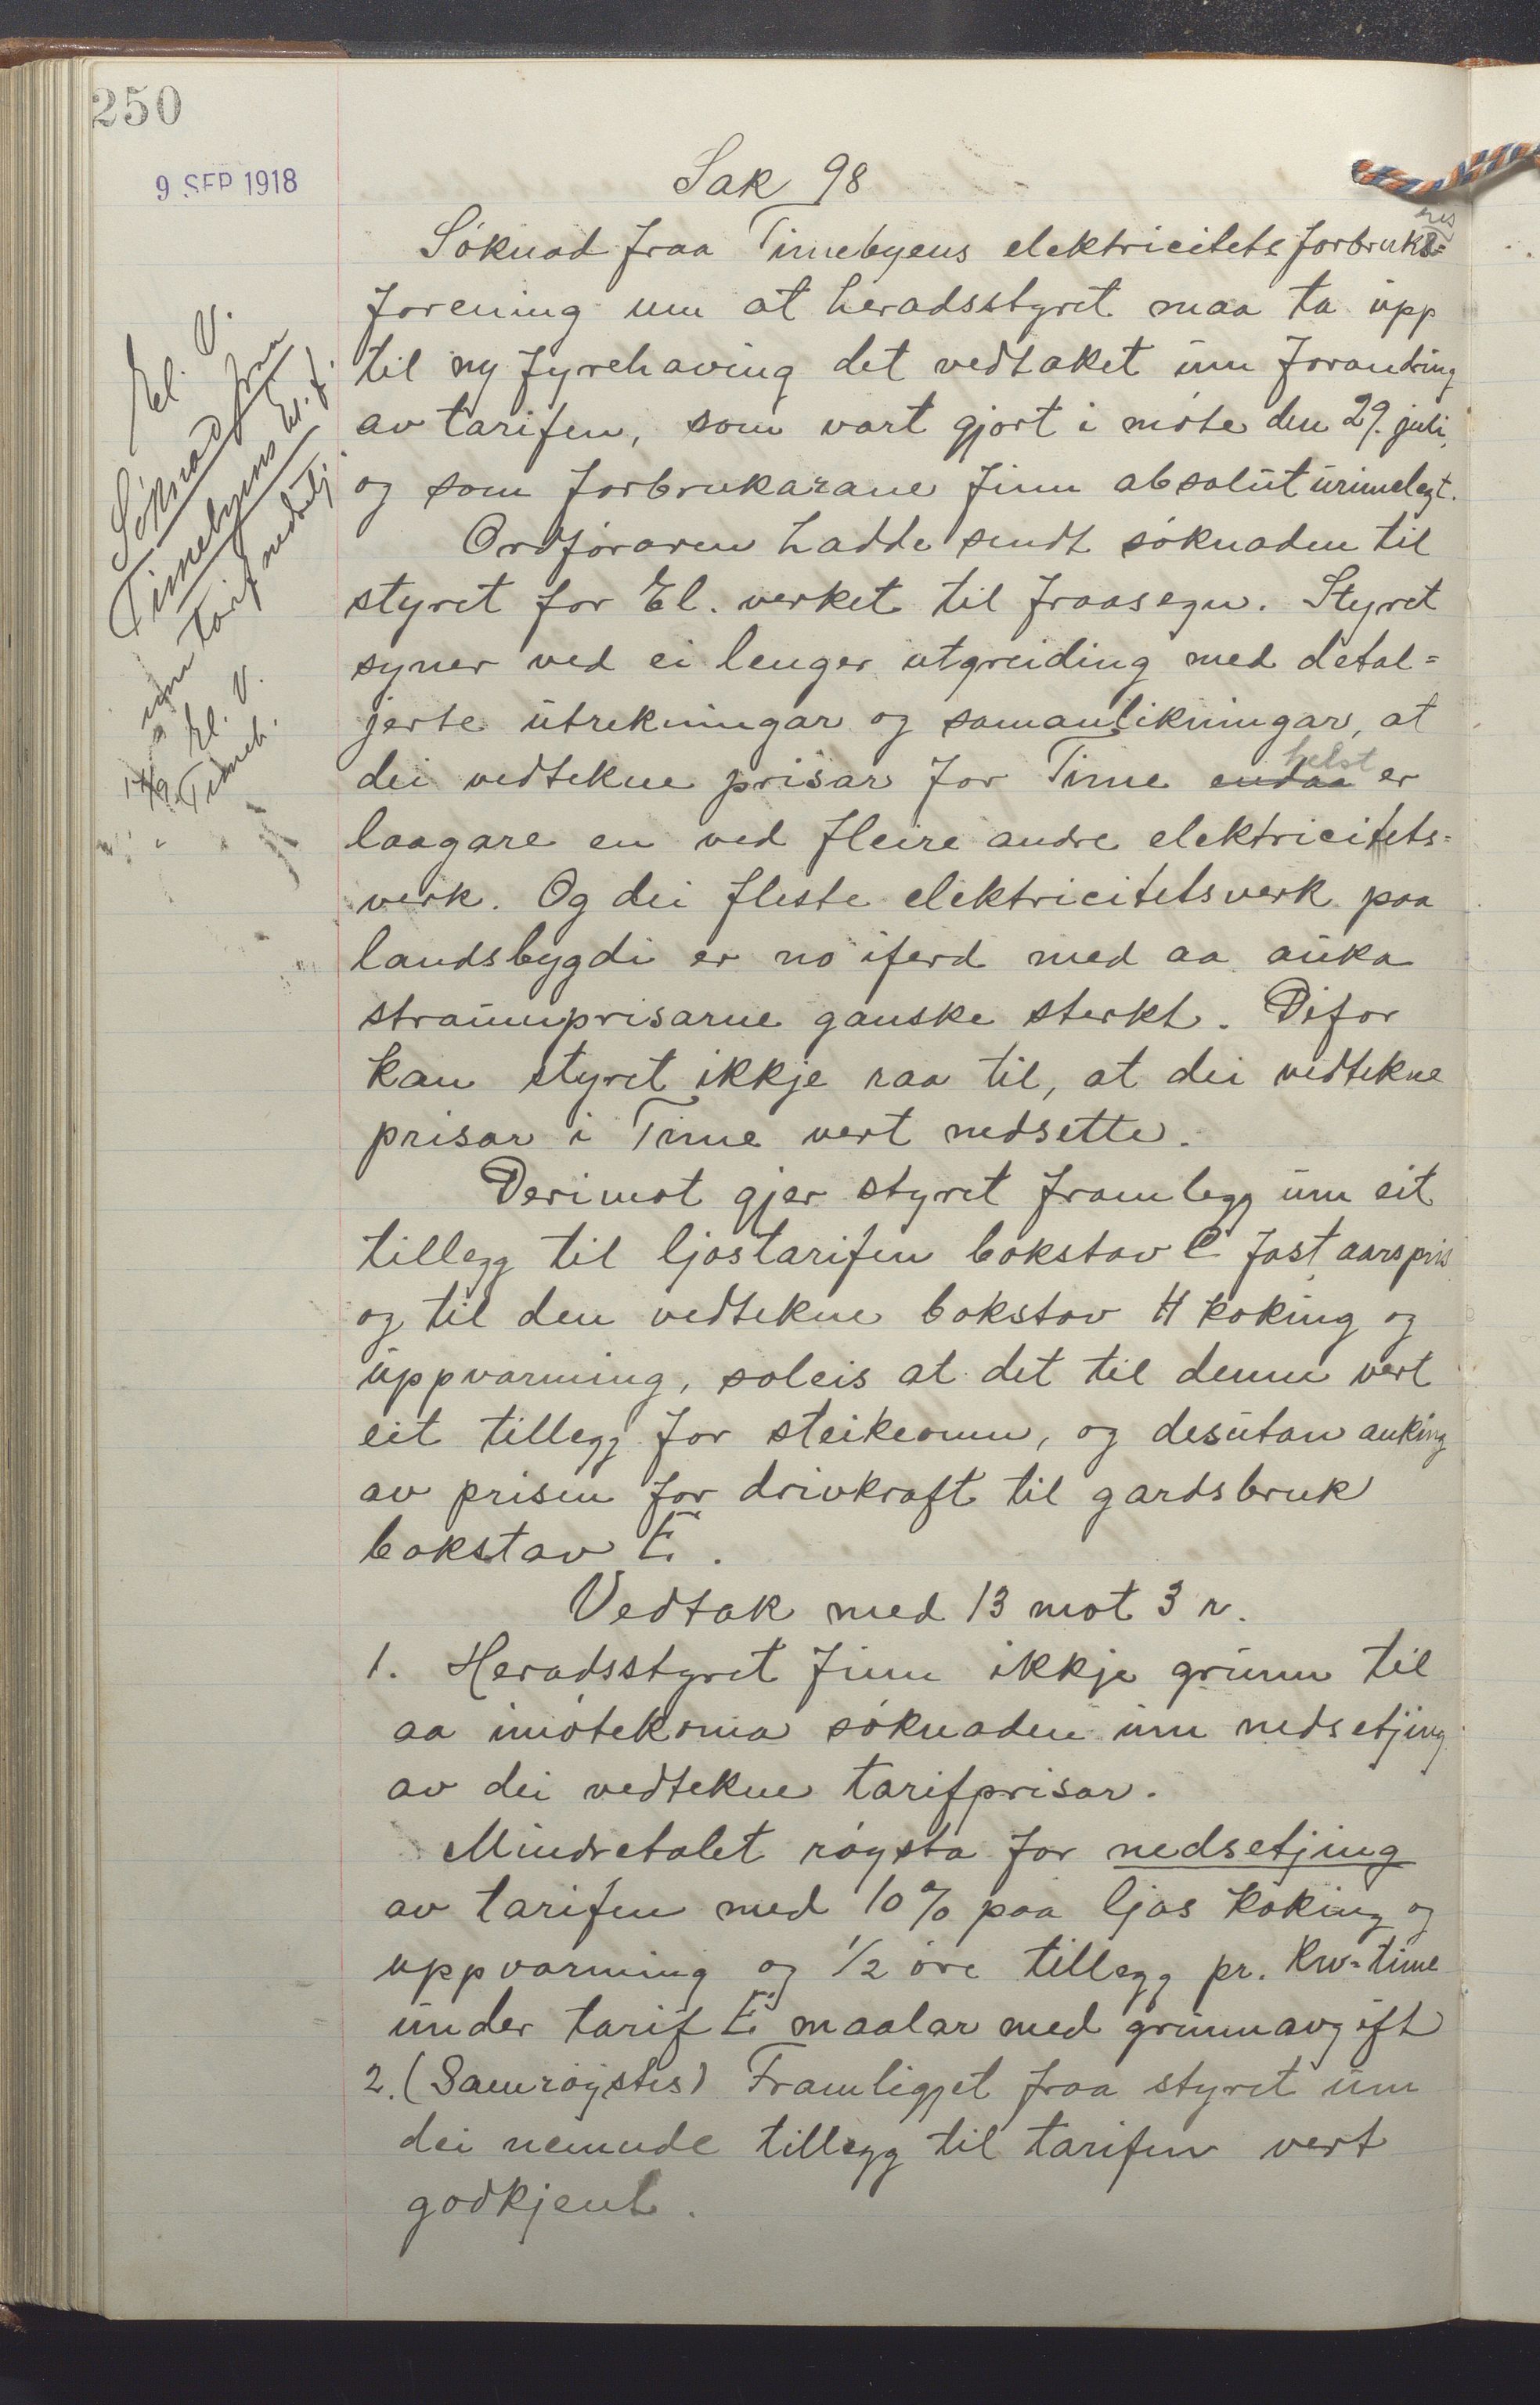 250
9 SEP 1918
Sak 98
Söknad fraa Timebyens elektricitetsforbruks=
forening um at heradsstyret maa ta upp
til ny fyrehaving det vedtaket um forandring
av tarifen, som vart gjort i möte den 29. juli,
og som forbrukarane finn absolut urimelegt.
Ordföraren hadde sendt söknaden til
styret for El. verket til fraasegn. Styret
syner ved ei lenger utgreiding med detal=
jerte utrekningar og samanlikningar, at
dei vedtekne prisar for Time endaa helst er
laagare en ved fleire andre elektricitets=
verk. Og dei fleste elektricitetsverk paa
landsbygdi er no iferd med aa auka
straumprisarne ganske sterkt. Difor
kan styret ikkje raa til, at dei vedtekne
prisar i Time vert nedsette.
Derimot gjer styret framlegg um eit
tillegg til ljostarifen bokstav C fast aarspris
og til den vedtekne bokstav H koking og
uppvarming, soleis at det til denne vert
eit tillegg for steikeomn, og desutan auking
av prisen for drivkraft til gardsbruk
bokstav E.
Vedtak med 13 mot 3 r.
1. Heradsstyret finn ikkje grunn til
aa imötekoma söknaden um nedsetjing
av dei vedtekne tarifprisar.
Mindretalet röysta for nedsetjing
av tarifen med 10% paa ljos koking og
uppvarming og 1/2 öre tillegg pr. Kw=time
under tarif E maalar med grunnavgift
2. (Samröystes) Framlegget fraa styret um
dei nemnde tillegg til tarifen vert
godkjent.
El. V.
Söknad fraa
Timebyens El. f.
um tarifnedsetj.
El. V.
Timeb.